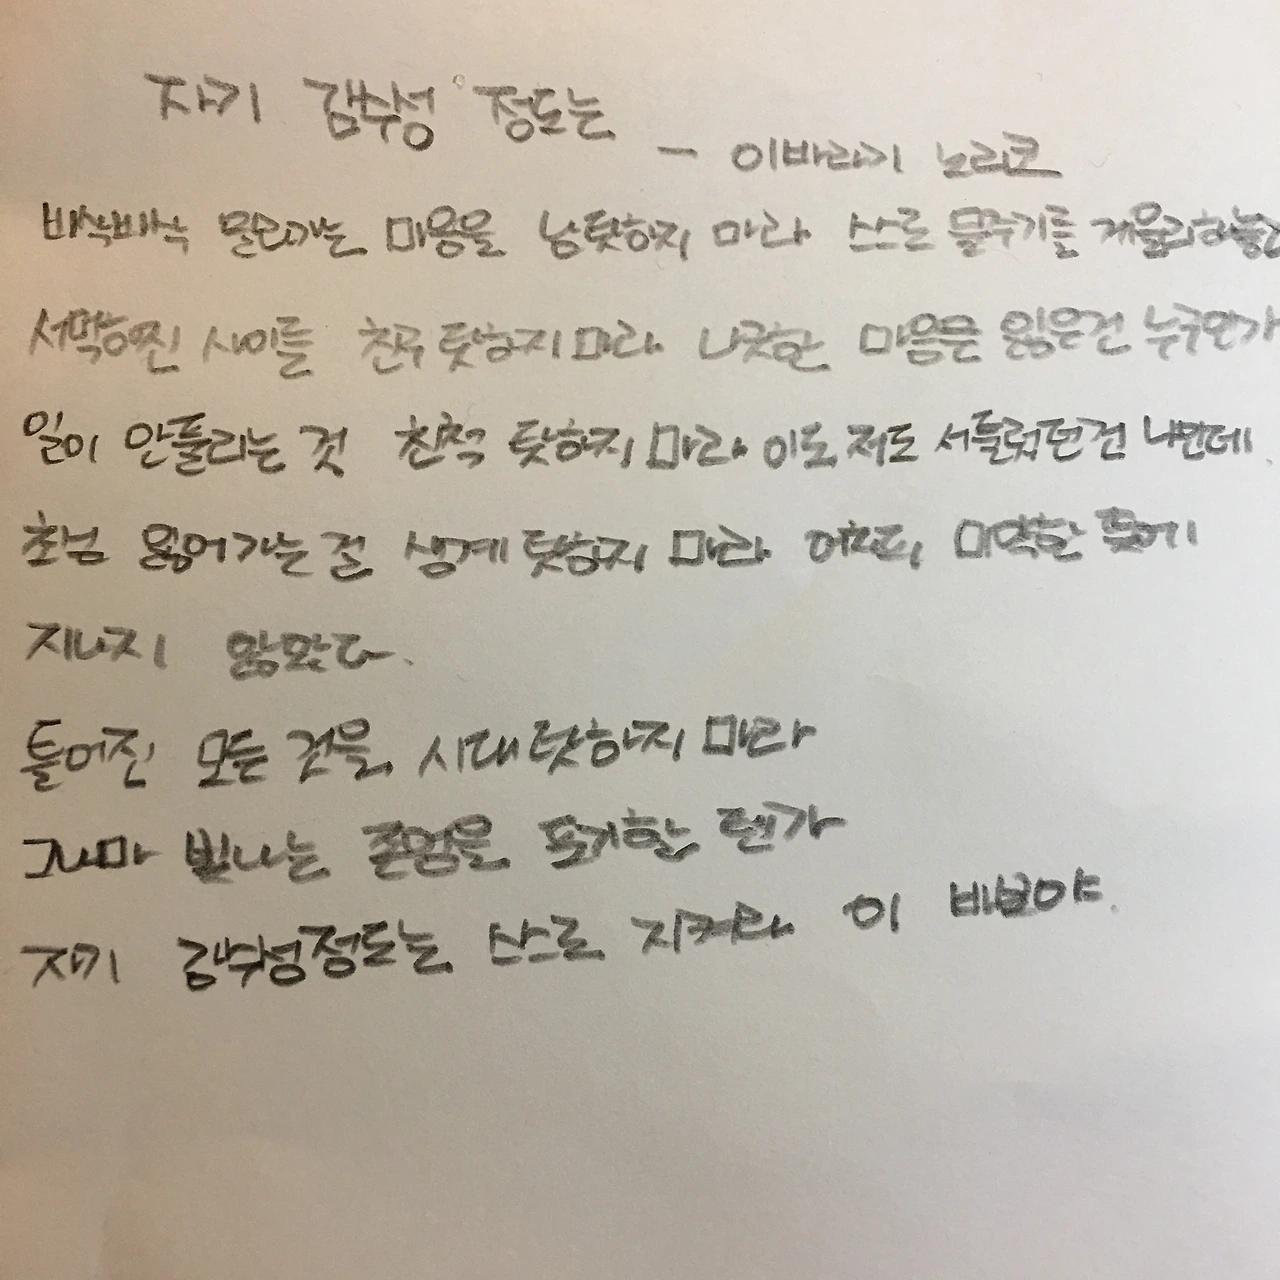 자기 감수성 정도는
- 이바라기 노리코
바삭바삭 말라가는 마음을 남 탓하지 마라 스스로 물주기를 게을리하놓고
서먹해진 사이를 친구 탓하지 마라 나긋한 마음을 잃은건 누구인가
일이 안풀리는 것 친척 탓하지 마라 이도 저도 서둘렀던건 나인데
초심 잃어가는 걸 생계 탓하지 마라 어차피 미약한 뜻에
지나지 않았다.
틀어진 모든 것을 시대 탓하지 마라
그나마 빛나는 존엄을 포기할 텐가
자기 감수성 정도는 스스로 지켜라 이 바보야.